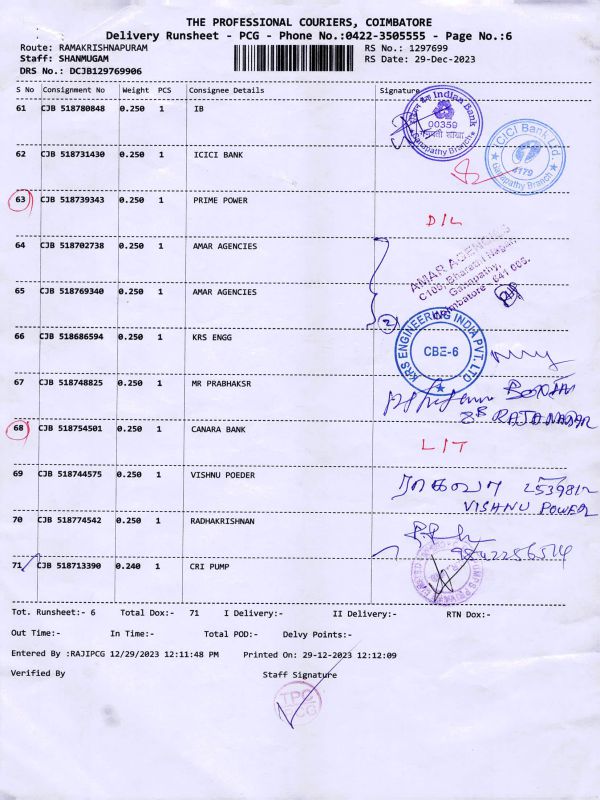 THE PROFESSIONAL COURIERS, COIMBATORE
Delivery Runsheet - PCG - Phone No.:0422-3505555 - Page No.:6
Route: RAMAKRISHNAPURAM RS No.: 1297699
Staff: SHANMUGAM RS Date: 29-Dec-2023
DRS No.: DCJB129769906
S No Consignment No Weight PCS Consignee Details Signature
61 CJB 518780848 0.250 1 IB
Indian Bank
00359
Ganapathy Branch
62 CJB 518731430 0.250 1 ICICI BANK
ICICI Bank Ltd.
4179
Ganapathy Branch
63 CJB 518739343 0.250 1 PRIME POWER D/L
64 CJB 518702738 0.250 1 AMAR AGENCIES
AMAR AGENCIES
C106, Bharathi Nagar,
Ganapathy,
Coimbatore - 641 006.
65 CJB 518769340 0.250 1 AMAR AGENCIES
2
66 CJB 518686594 0.250 1 KRS ENGG
KRS ENGINEERING INDIA PVT. LTD
CBE-6
67 CJB 518748825 0.250 1 MR PRABHAKSR
68 CJB 518754501 0.250 1 CANARA BANK L/T
69 CJB 518744575 0.250 1 VISHNU POEDER
VISHNU POWER
70 CJB 518774542 0.250 1 RADHAKRISHNAN
71 CJB 518713390 0.240 1 CRI PUMP
Tot. Runsheet:- 6 Total Dox:- 71 I Delivery:- II Delivery:- RTN Dox:-
Out Time:- In Time:- Total POD:- Delvy Points:-
Entered By :RAJIPCG 12/29/2023 12:11:48 PM Printed On: 29-12-2023 12:12:09
Verified By Staff Signature
TPC
PCG